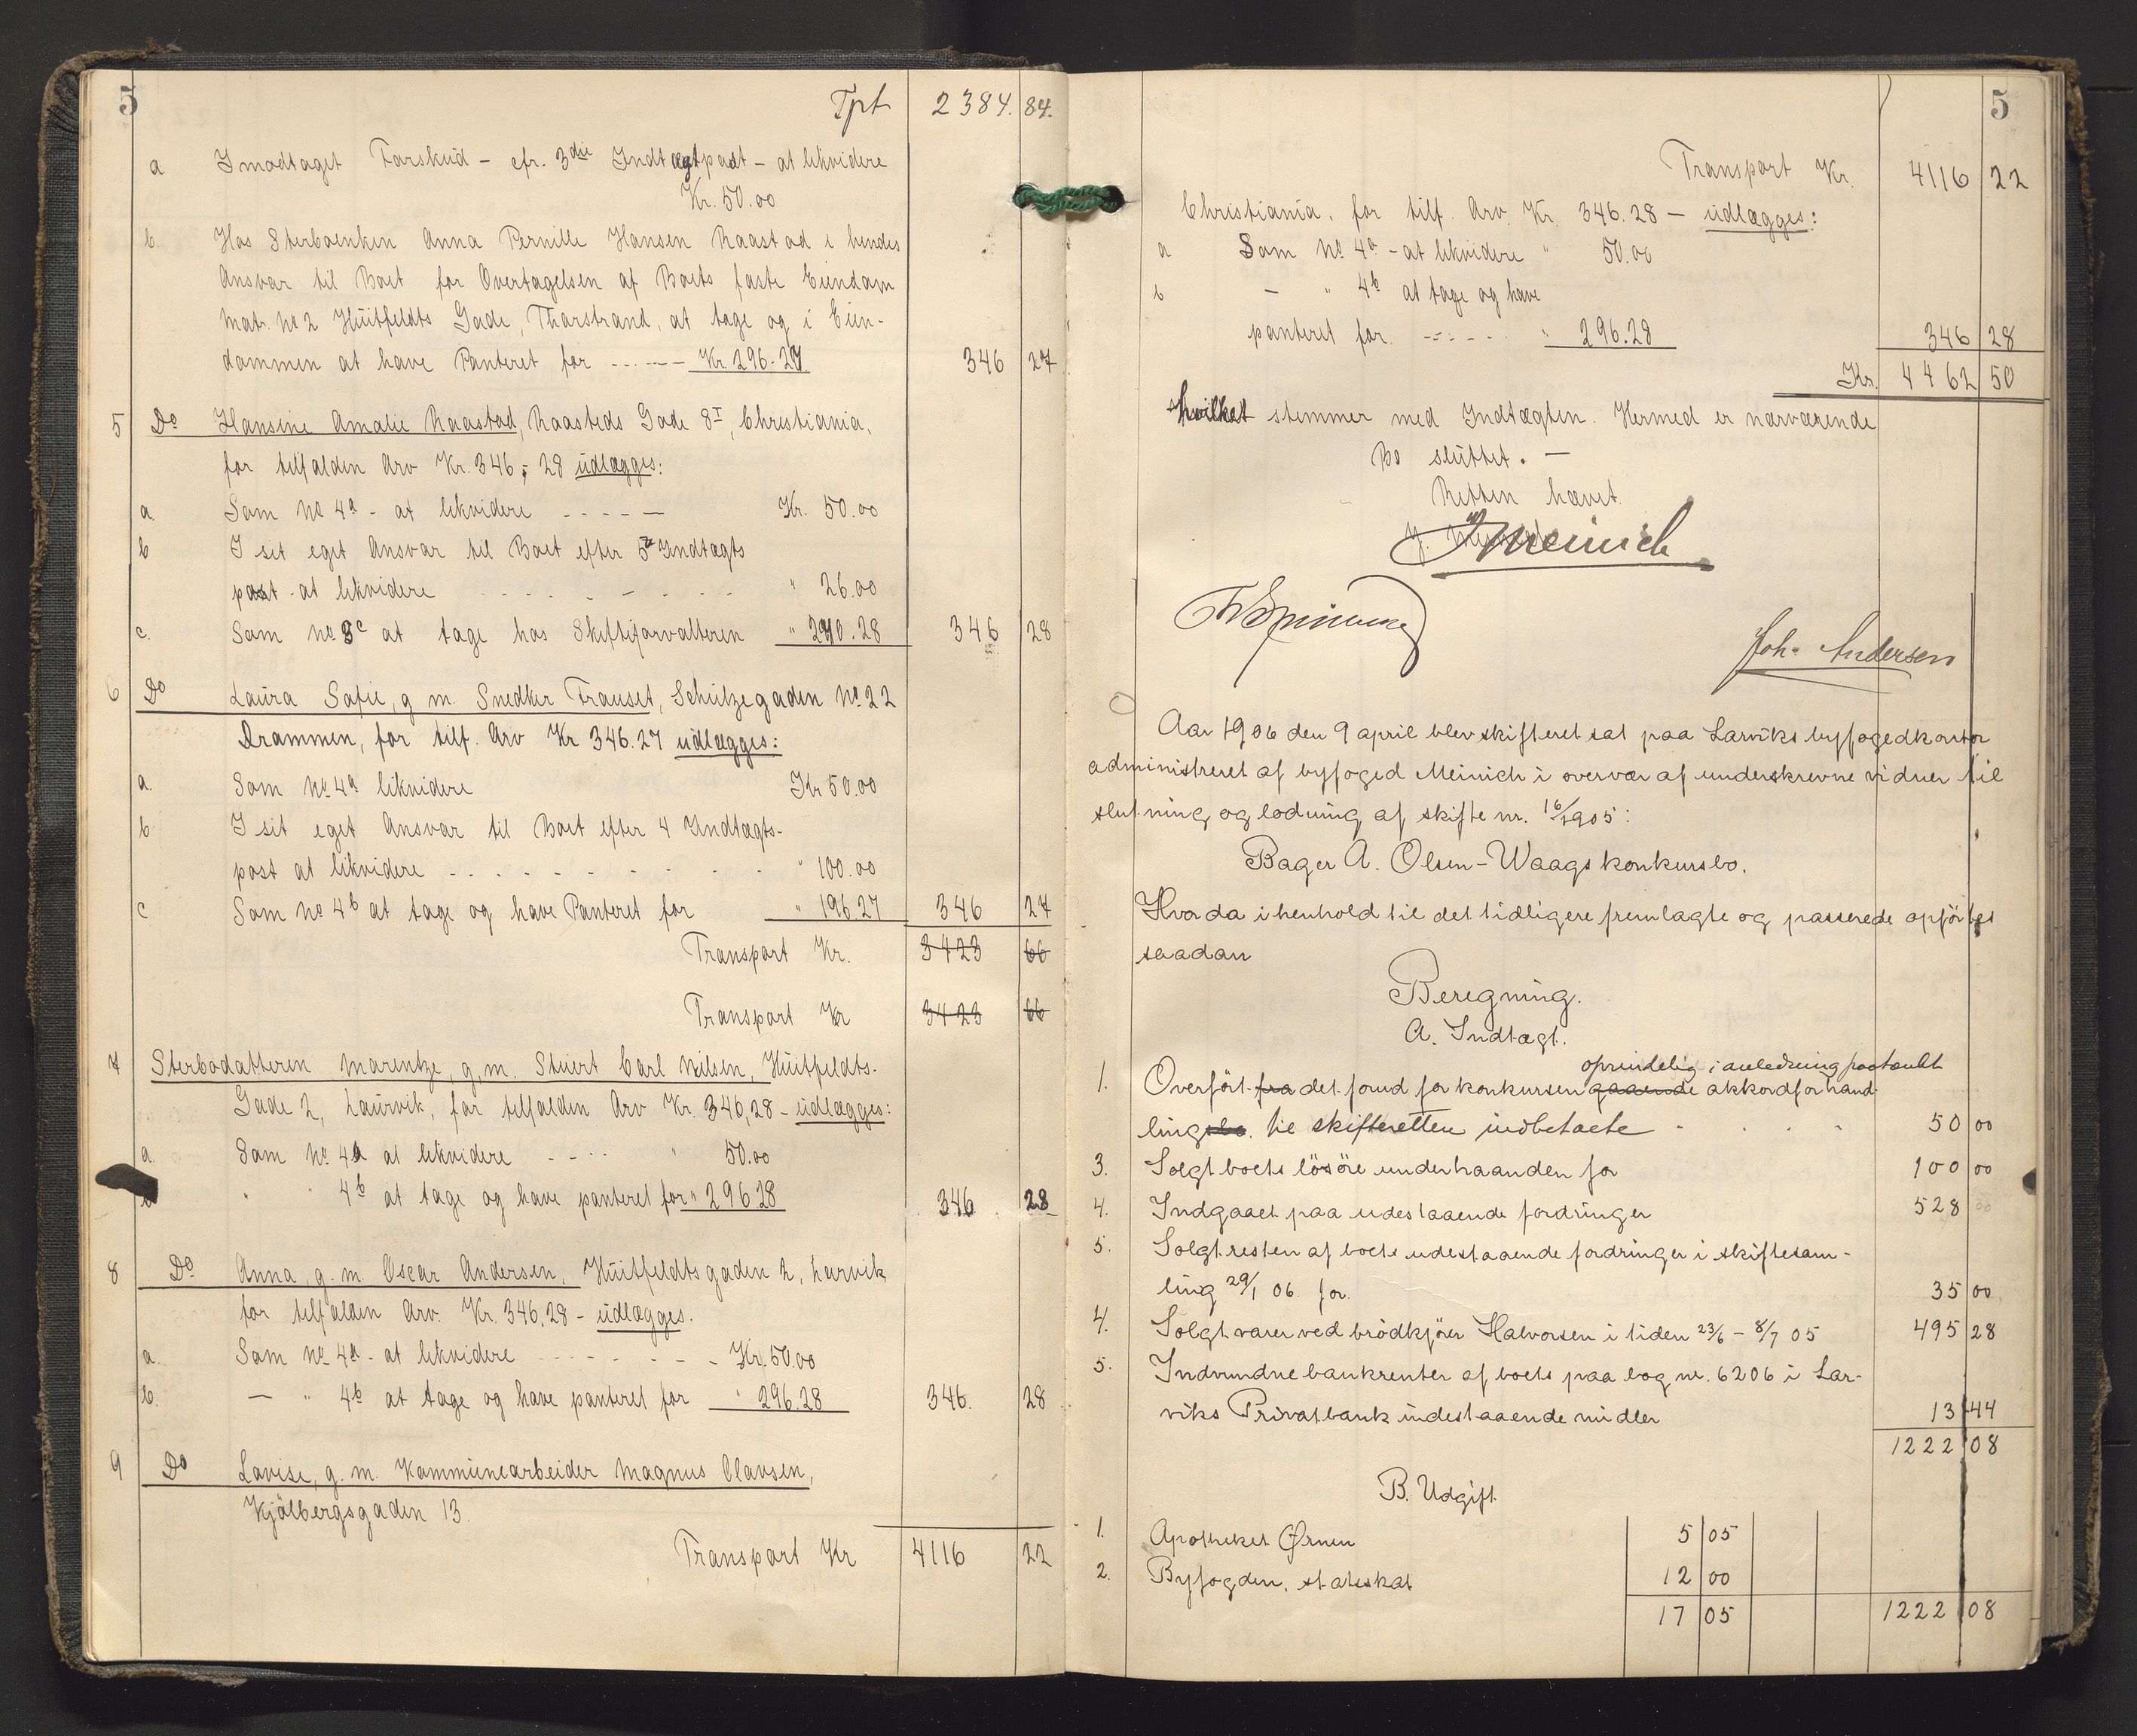 5
Tpt 2384. 84.
a I modtaget Forskud - cfr. 3die Indtægtpost - at likvidere
Kr. 50.00
b. Hos Sterboenken Anna Pernille Hansen Raastad i hendes
Ansvar til Boet for Overtagelsen af Boets faste Eiendom
Matr. No 2 Hüitfeldts Gade, Thorstrand, at tage og i Eien-
dommen at have Panteret for ----- Kr 296.27 346 27
5 Do Hansine Amalie Raastad, Raasteds Gade 8I, Christiania,
for tilfalden Arv Kr. 346,28 üdlægges:
a. Som No 4a - at likvidere ----- Kr. 50.00
b I sit eget Ansvar til Boet efter 5te Indtægts
post - at likvidere - - - - - - " 26.00
c. Som No 3c at tage hos Skifteforvalteren " 270.28 346 28
6 Do Laüra Sofie, g m. Snedker Frauset, Schützegaden No 22
Drammen, for tilf. Arv Kr 346.27 üdlægges:
a. Som No 4a likvidere Kr 50.00
b I sit eget Ansvar til Boet efter 4 Indtægts-
post at likvidere - - - - - - - - " 100.00
c Som No 4b at tage og have Panteret for " 196.27 346 27
Transport Kr. 3423 66
Transport Kr 3423 66
7 Sterbodatteren Marentze, g, m. Stüert Carl Nilsen, Hüitfeldts-
Gade 2, Laürvik, for tilfalden Arv Kr. 346,28 - üdlægges:
a. Som No 4a at likvidere - - - - " 50.00
b " " 4b at tage og have panteret for " 296.28 346. 28
8 Do Anna, g. m. Oscar Andersen, Hüitfeldtsgaden 2, Larvik
for tilfalden Arv. Kr. 346.28 - üdlægges.
a. Som No 4a - at likvidere - - - - - - Kr. 50.00
b. — " 4b at tage og have panteret for " 296.28 346. 28
9 Do Lovise, g. m. Kommünearbeider Magnus Olavsen,
Kjölbergsgaden 13.
Transport Kr 4116 22
5
Transport Kr. 4116 22
Christiania, for tilf. Arv. Kr. 346.28 — üdlægges:
a Som No 4a - at likvidere " 50.00
b — " 4b at tage og have
panteret for. - - - - - " 296.28 346 28
Kr. 4462 50
hvilket stemmer med Indtægten. Hermed er nærværende
Bo slüttet. —
Retten hævet.
Meinich
Joh. Andersen
Aar 1906 den 9 april blev skifteret sat paa Larviks byfogedkontor
administreret af byfoged Meinich i overvær af underskrevne vidner til
slutning og lodning af skifte nr. 16/1905:
Bager A. Olsen-Waags konkursbo.
Hvorda i henhold til det tidligere fremlagte og passerede opförtes
saadan
Beregning.
A. Indtægt.
oprindelig i anledning paatænkt
1. Overfört fra det forud for konkursen gaaende akkordforhand-
lingsbo. til skifteretten indbetaelte - - - - 50 00
3. Solgt boets lösöre underhaanden for 100 00
4. Indgaaet paa udestaaende fordringer 528 00
5. Solgt resten af boets udestaaende fordringer i skiftesam-
ling 29/1 06 for. 35 00
4. Solgt varer ved brödkjörer Halvorsen i tiden 23/6 - 8/7 05 495 28
5. Indvundne bankrenter af boets paa bog nr. 6206 i Lar-
viks Privatbank indestaaende midler 13 44
1222 08
B. Udgift.
1. Apotheket Ørnen 5 05
2. Byfogden, statsskat 12 00
17 05 1222 08